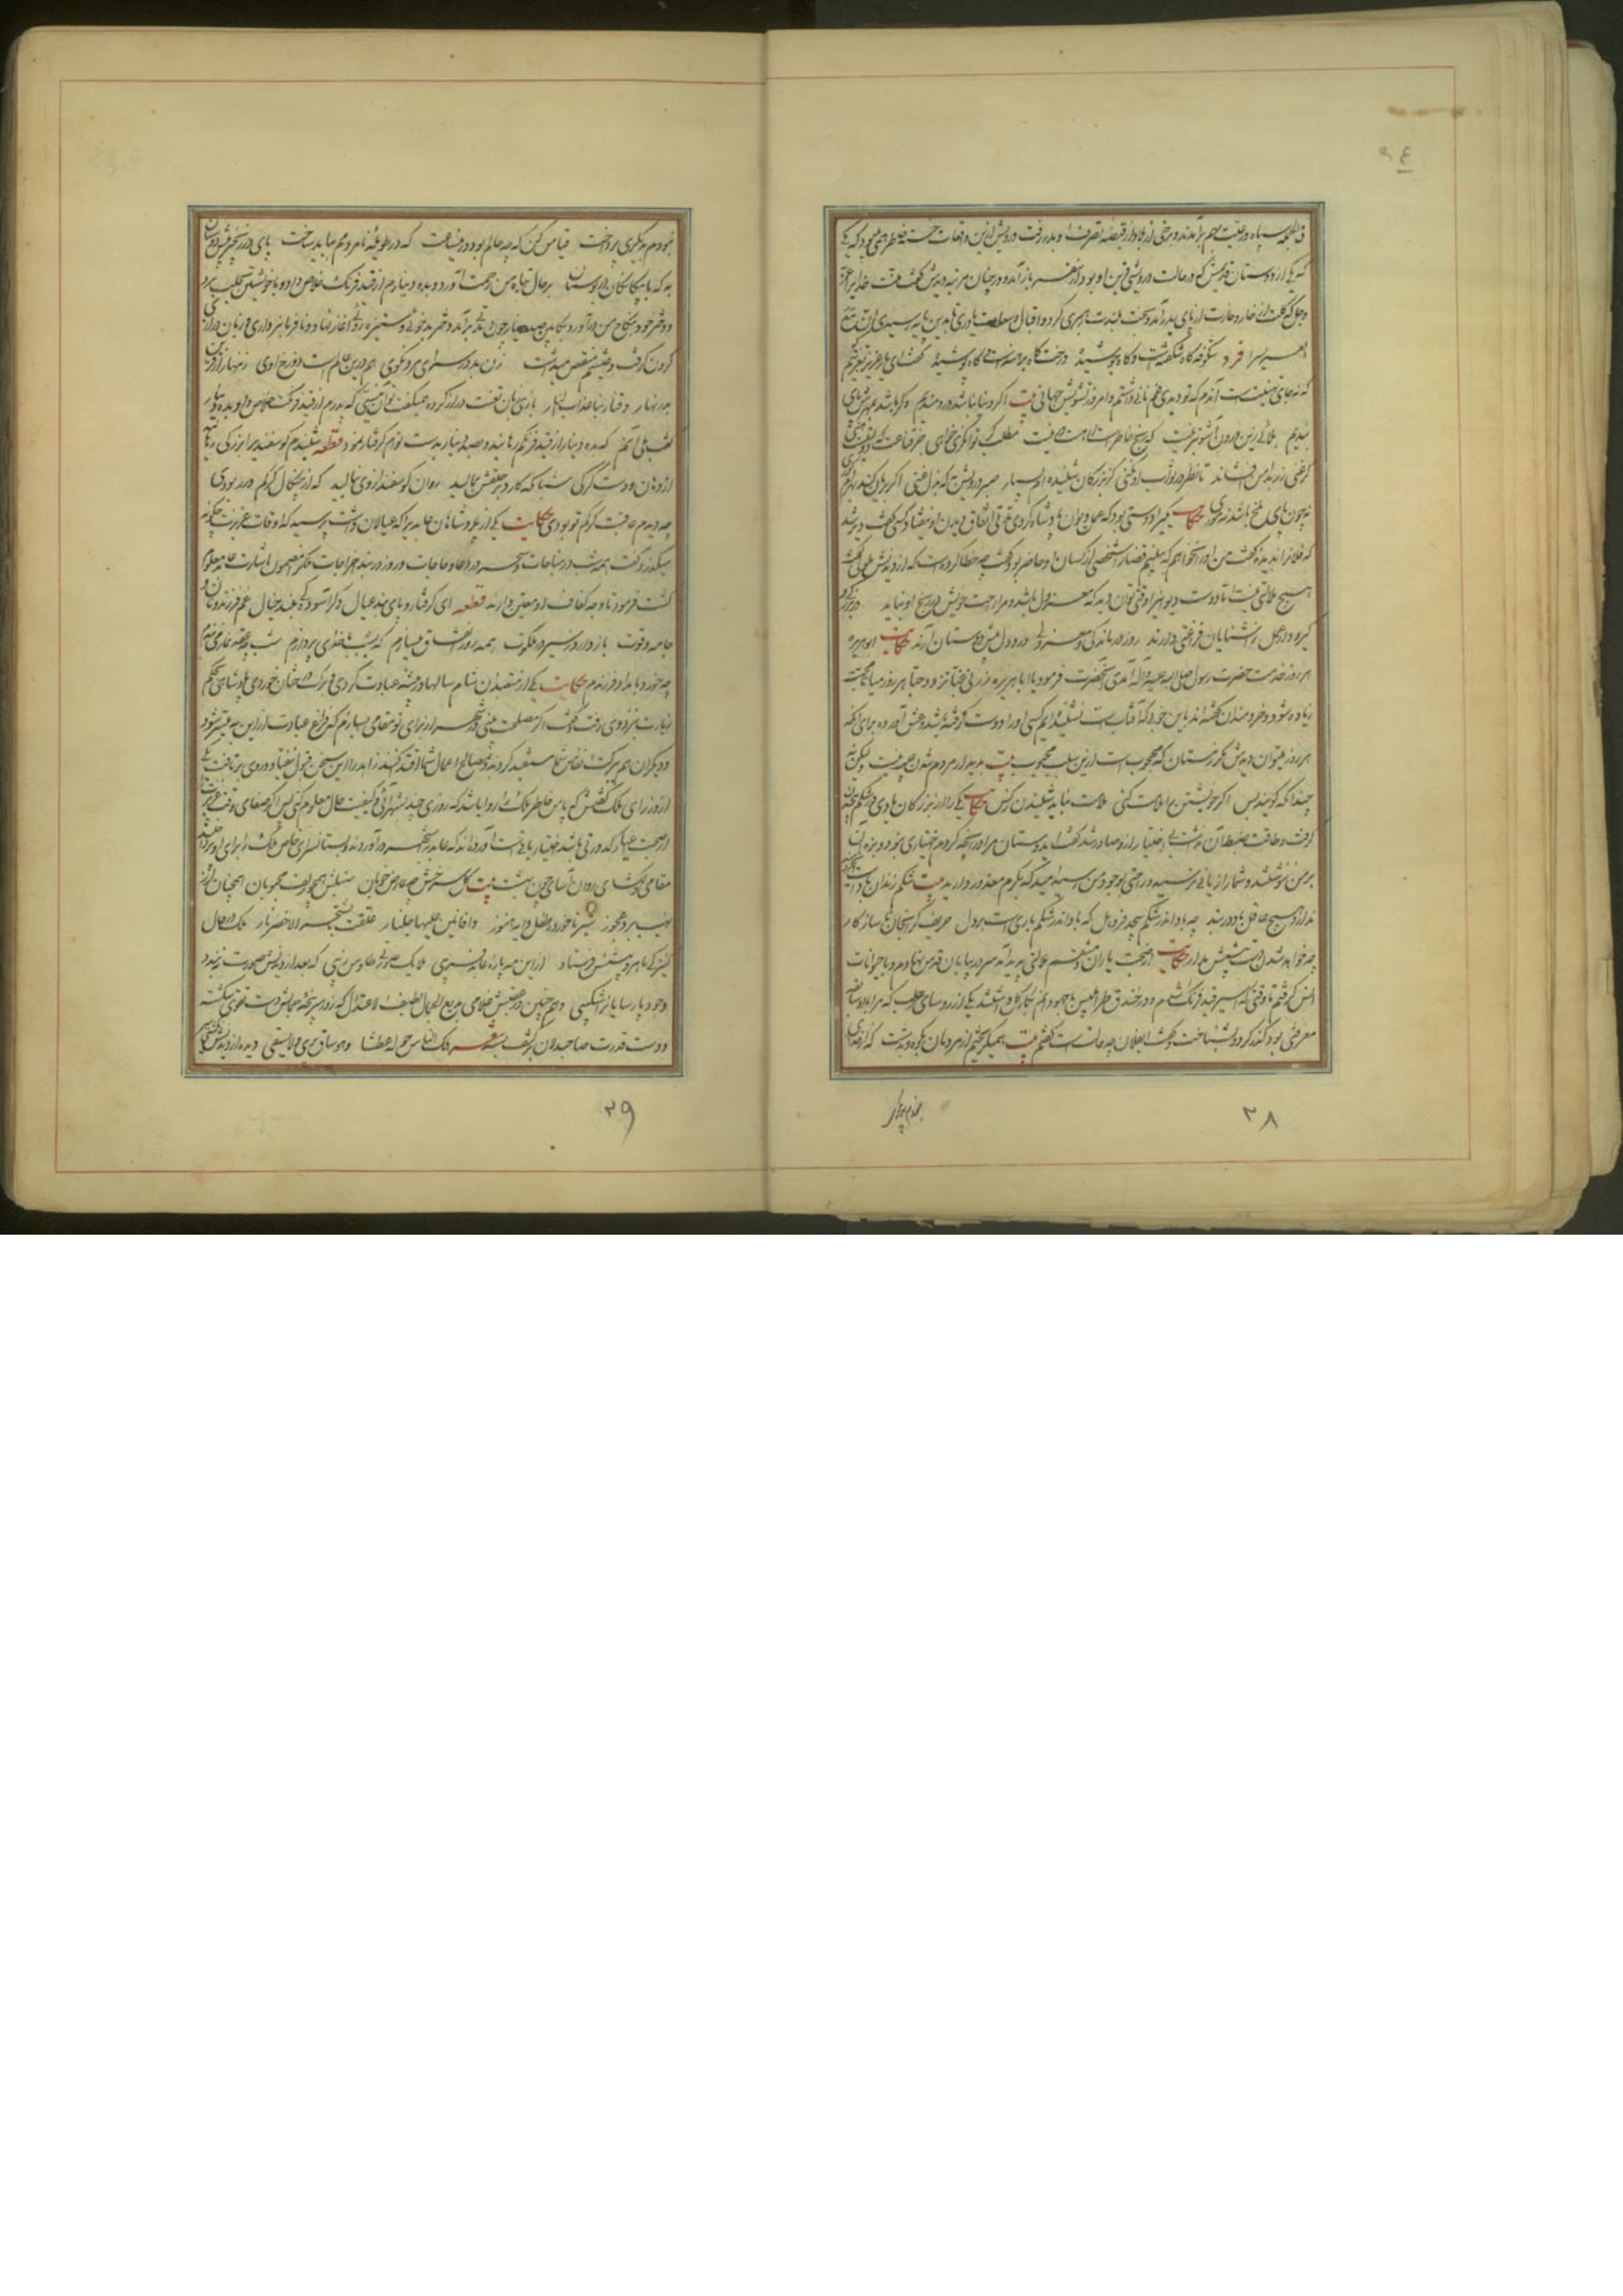 فی الجمله سپاه و رعیت بهم برآمدند و برخی از بلاد از قبضه تصرف او بدر رفت درویش ازین واقعات خسته خاطر همی بود که یکی
که یکی از دوستان قدیمش که در حالت درویشی قرین او بود از سفر باز آمد و در چنان مرتبه دیدش گفت منت خدایرا عز
و جل که گلت از خار و خارت از پای بدر آمد و بخت بلندت رهبری کرد و اقبال و سعادت یاوری تا بدین پایه رسیدی ان مع
العسر یسرا فرد شکوفه گاه شکفتست و گاه پوشیده درخت گاه برهنه است و گاه پوشیده گفت ای یار عزیز تعزیتم
که نه جای تهنیت است آندم که تو دیدی غم نانی داشتم و امروز تشویش جهانی بیت اگر دنیا نباشد دردمندیم و گر باشد بمهرش پای
بندیم بلائی زین درون آشوبتر نیست که رنج خاطرست ار هست ور نیست مطلب گر توانگری خواهی جز قناعت که دولتیست هنی
گر غنی زر بدامن افشاند تا نظر در ثواب او نکنی کز بزرگان شنیده‌ام بسیار صبر درویش به که بذل غنی اگر بریان کند بهرام گوری
نه چون پای ملخ باشد ز موری حکایت یکیرا دوستی بود که عمل دیوان پادشاه کردی مدتی اتفاق دیدن او نیفتاد کسی گفت دیر شد
که فلانرا ندیده گفت من او را نخواهم که ببینم قضا را شخصی از کسان او حاضر بود گفت چه خطا کرده است که از دیدنش ملولی گفت
هیچ ملالتی نیست اما دوست دیوانیرا وقتی توان دید که معزول باشد و مرا راحت خویش در رنج او نباید در بزرگی و
گیر و دار عمل ز آشنایان فراغتی دارند روز درماندگی و معزولی درد دل پیش دوستان آرند حکایت ابوهریره
هر روز بخدمت حضرت رسول صلی الله علیه و آله آمدی آنحضرت فرمود یا ابا هریره زرنی غبا تزدد حبا هر روز میا تا محبت
زیاده شود و خردمندان گفته‌اند باین خوبی که آفتاب است نشنیده‌ایم کسی او را دوست گرفته باشد و عشق آورده برای آنکه
هر روز میتوان دیدش مگر زمستان که محجوب است ازین سبب محبوب بیت بدیدار مردم شدن عیب نیست ولیکن نه
چندانکه گویند بس اگر خویشتن را ملامت کنی ملامت نباید شنیدن ز کس حکایت یکی را از بزرگان بادی در شکم پیچیدن
گرفت و طاقت ضبط آن نداشت بی اختیار ازو صادر شد گفت ای دوستان مرا در آنچه کردم اختیاری نبود و بزه آن
بر من ننوشتند و شما را زیانی نرسید و راحتی بوجود من رسید امید که بکرم معذور دارید بیت شکم زندان بادست ای
ندارد هیچ عاقل باد در بند چه باد اندر شکم پیچد فرو هل که باد اندر شکم باری است بر دل حریف گرانجان ناسازگار
چه خواهد شدن دست پیشش مدار حکایت از صحبت یاران دمشقم ملالتی پدید آمد سر در بیابان قدس نهادم و با حیوانات
انس گرفتم تا وقتی که اسیر قید فرنگ شدم و در خندق طرابلس با جهودانم بکار گل داشتند یکی از رؤسای حلب که مرا با او سابقه
معرفتی بود گذر کرد و بشناخت و گفت ای فلان چه حالت است گفتم بیت همیگریختم از مردمان بکوه و بدشت که از خدای
نبودم بدیگری پرداخت قیاس کن که چه حالم بود در این ساعت که در طویله نامردمم بباید ساخت پای در زنجیر پیش دوستان
به که با بیگانگان در بوستان بر حال تباه من رحمت آورد و بده دینارم از قید فرنگ خلاص داد و با خویشتن بحلب برد
و دختر خود بنکاح من درآورد بکابین صد دینار چون مدتی برآمد دختر بدخوئی و ستیزه روئی آغاز نهاد و نافرمانبرداری و زبان درازی
کردن گرفت و عیشم منغص میداشت زن بد در سرای مرد نکوی هم درین عالم است دوزخ اوی زنهار از قرین
بد زنهار وقنا ربنا عذاب النار باری زبان تعنت دراز کرده همیگفت تو آن نیستی که پدرم از قید فرنگت خلاص داد بده دینار
گفتم بلی آنم که بده دینار از قید فرنگم رهانید و بصد دینار بدست تو ام گرفتار نمود قطعه شنیدم گوسفندیرا بزرگی رهانید
از دهان و دست گرگی شبانگه کارد بر حلقش بمالید روان گوسفند از وی بنالید که از چنگال گرگم در ربودی
چو دیدم عاقبت گرگم تو بودی حکایت یکی از پادشاهان عابدیرا که عیالان داشت پرسید که اوقات عزیزت چگونه
میگذرد گفت همه شب در مناجات و سحر در دعا و حاجات و روز در بند اخراجات ملک را مضمون اشارت عابد معلوم
گشت فرمود تا وجه کفاف او معین دارند قطعه ای گرفتار و پای بند عیال دگر آسودگی مبند خیال غم فرزند و نان و
جامه و قوت بازدارد ز سیر در ملکوت همه روز اتفاق میسازم که بشب با خدای پردازم شب چو عقد نماز می بندم
چه خورد بامداد فرزندم حکایت یکی از متعبدان شام سالها در بیشه عبادت کردی و برگ درختان خوردی پادشاهی بحکم
زیارت بنزد وی رفت و گفت اگر مصلحت بینی در شهر از برای تو مقامی بسازم که فراغ عبادت ازین به میسر شود
و دیگران هم ببرکت انفاس شما مستفید گردند و بصالح اعمال شما اقتدا کنند زاهد را این سخن قبول نیفتاد و روی برتافت یکی
از وزرای ملک گفتش که پاس خاطر ملک را روا باشد که روزی چند بشهر آئی و کیفیت حال معلوم کنی پس اگر صفای وقت عزیزانرا
از صحبت اغیار کدورتی باشد اختیار باقی است آورده‌اند که عابد بشهر درآمد و بستانسرای خاص ملک را برای او پرداختند
مقامی دلگشای روان آسای چون بهشت بیت گل سرخش چو عارض خوبان سنبلش همچو زلف محبوبان همچنان از
نهیب برد عجوز شیر ناخورده طفل دایه هنوز وافانین علیها جلنار علقت بالشجر الاخضر نار ملک در حال
کنیزکی ماهرو پیشش فرستاد ازین مه پاره عابد فریبی ملایک صورتی طاوس زیبی که بعد از دیدنش صورت نبندد
وجود پارسایان را شکیبی و همچنین در عقبش غلامی بدیع الجمال لطیف الاعتدال که زور پنجه جمالش دست تقوی شکسته
و دست قدرت صاحبدلان بر کتف بسته شعر هلک الناس حوله عطشا وهو ساق یری ولا یسقی دیده از دیدنش نگشتی سیر
۲۸
بنودم بدیگر
۲۹